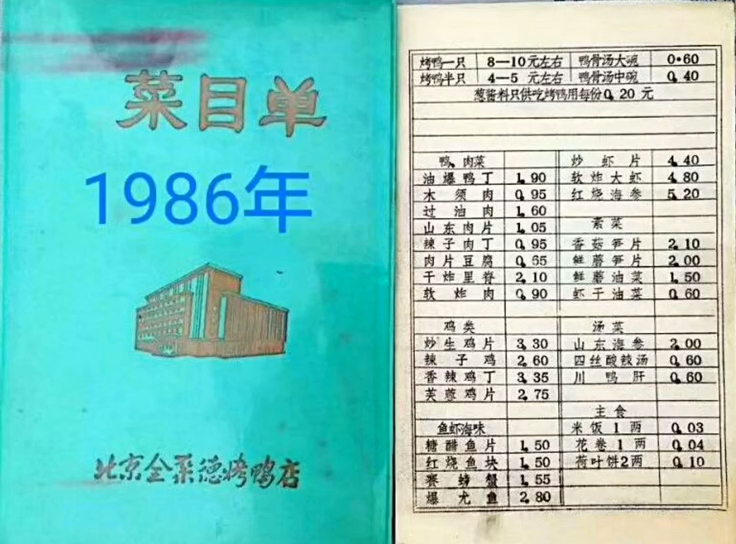 菜目单
1986年
北京全聚德烤鸭店
烤鸭一只 8—10元左右 鸭骨汤大碗 0.60
烤鸭半只 4—5元左右 鸭骨汤中碗 0.40
葱酱料只供吃烤鸭用每份0.20元
鸭、肉菜 炒虾片 4.40
油爆鸭丁 1.90 软炸大虾 4.80
木须肉 0.95 红烧海参 5.20
过油肉 1.60
山东肉片 1.05 素菜
辣子肉丁 0.95 香菇笋片 2.10
肉片豆腐 0.65 鲜蘑笋片 2.00
干炸里脊 2.10 鲜蘑油菜 1.50
软炸肉 0.90 虾干油菜 0.60
鸡类 汤菜
炒生鸡片 3.30 山东海参 2.00
辣子鸡 2.60 四丝酸辣汤 0.60
香辣鸡丁 3.35 川鸭肝 0.60
芙蓉鸡片 2.75
主食
鱼虾海味 米饭1两 0.03
糖醋鱼片 1.50 花卷1两 0.04
红烧鱼块 1.50 荷叶饼2两 0.10
赛螃蟹 1.55
爆尤鱼 2.80